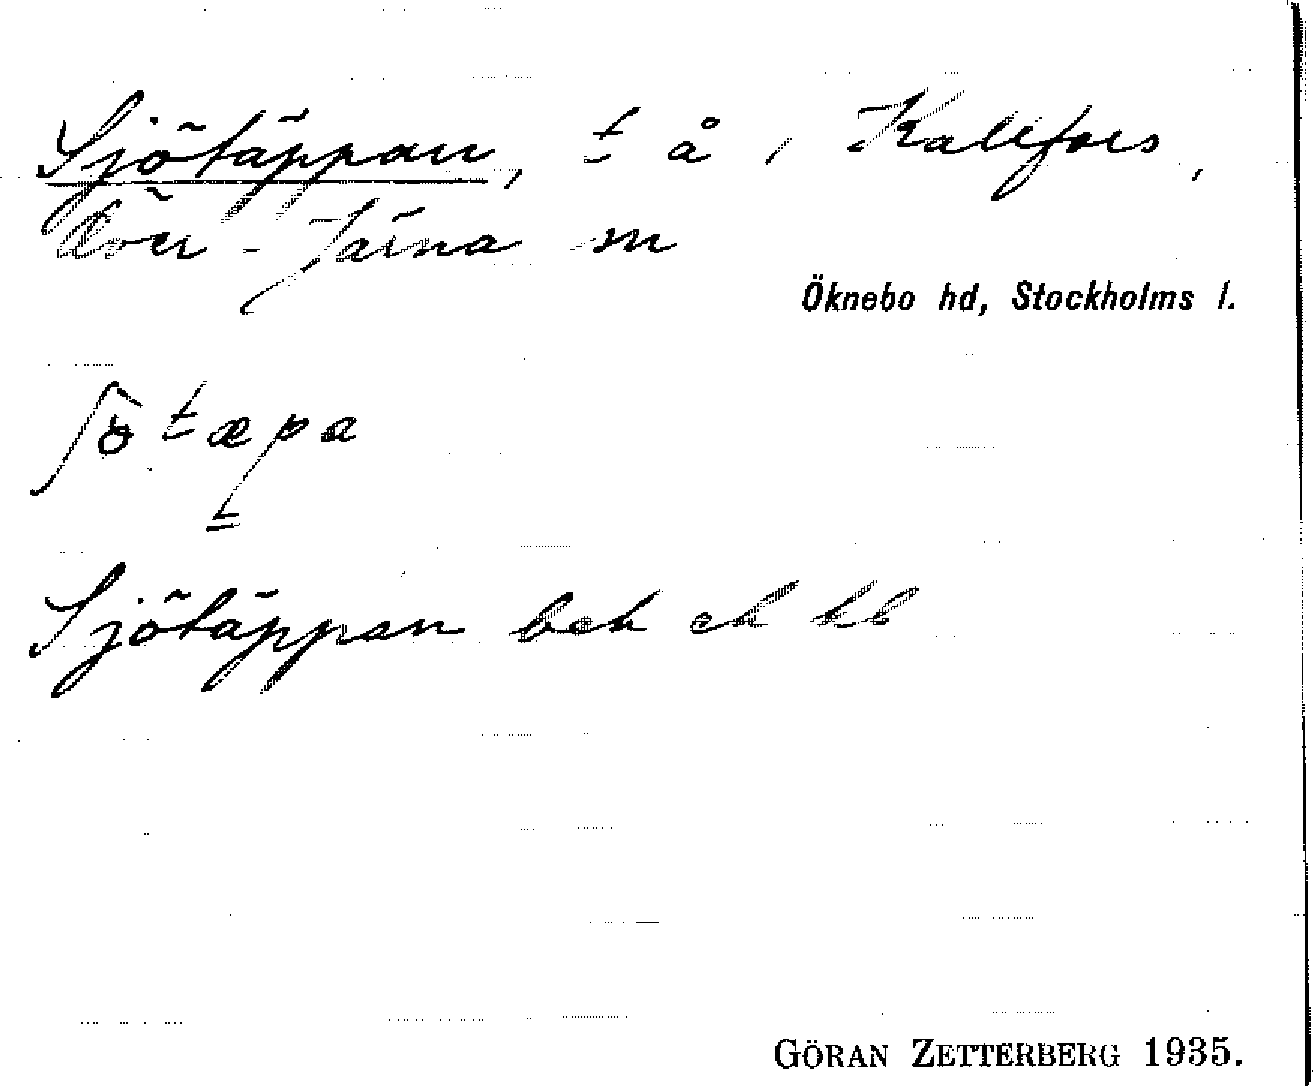 Sjötäppan, t å, Kallfors,
Över-Järna sn
Öknebo hd, Stockholms l.
ʃötæpa
Sjötäppan bek
GÖRAN ZETTERBERG 1935.